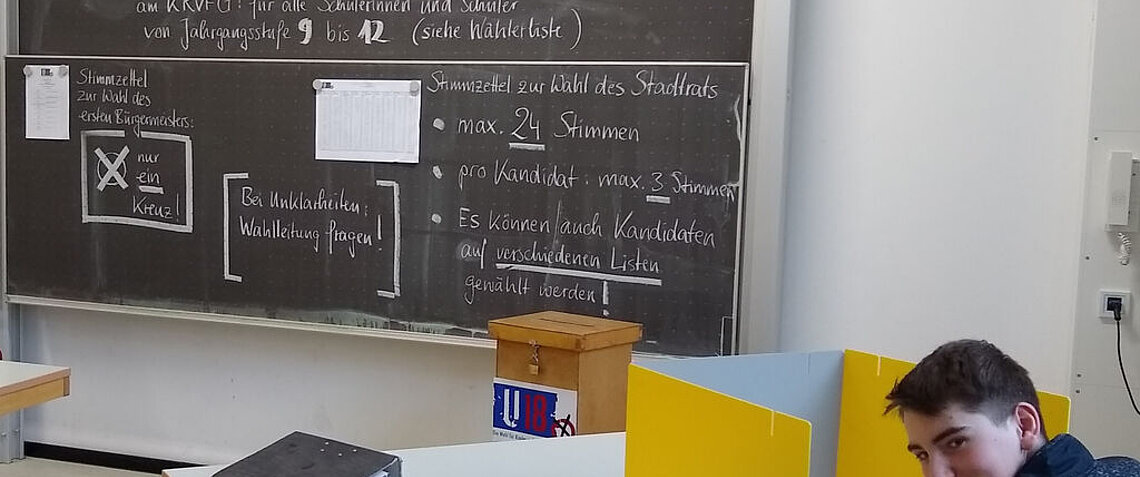 am KRVFG: für alle Schülerinnen und Schüler
von Jahrgangsstufe 9 bis 12 (siehe Wählerliste)
Stimmzettel
zur Wahl des
ersten Bürgermeisters:
nur
ein
Kreuz!
Bei Unklarheiten:
Wahlleitung fragen!
Stimmzettel zur Wahl des Stadtrats
max. 24 Stimmen
pro Kandidat: max. 3 Stimmen
Es können auch Kandidaten
auf verschiedenen Listen
gewählt werden!
U18
Die Wahl für Kinder